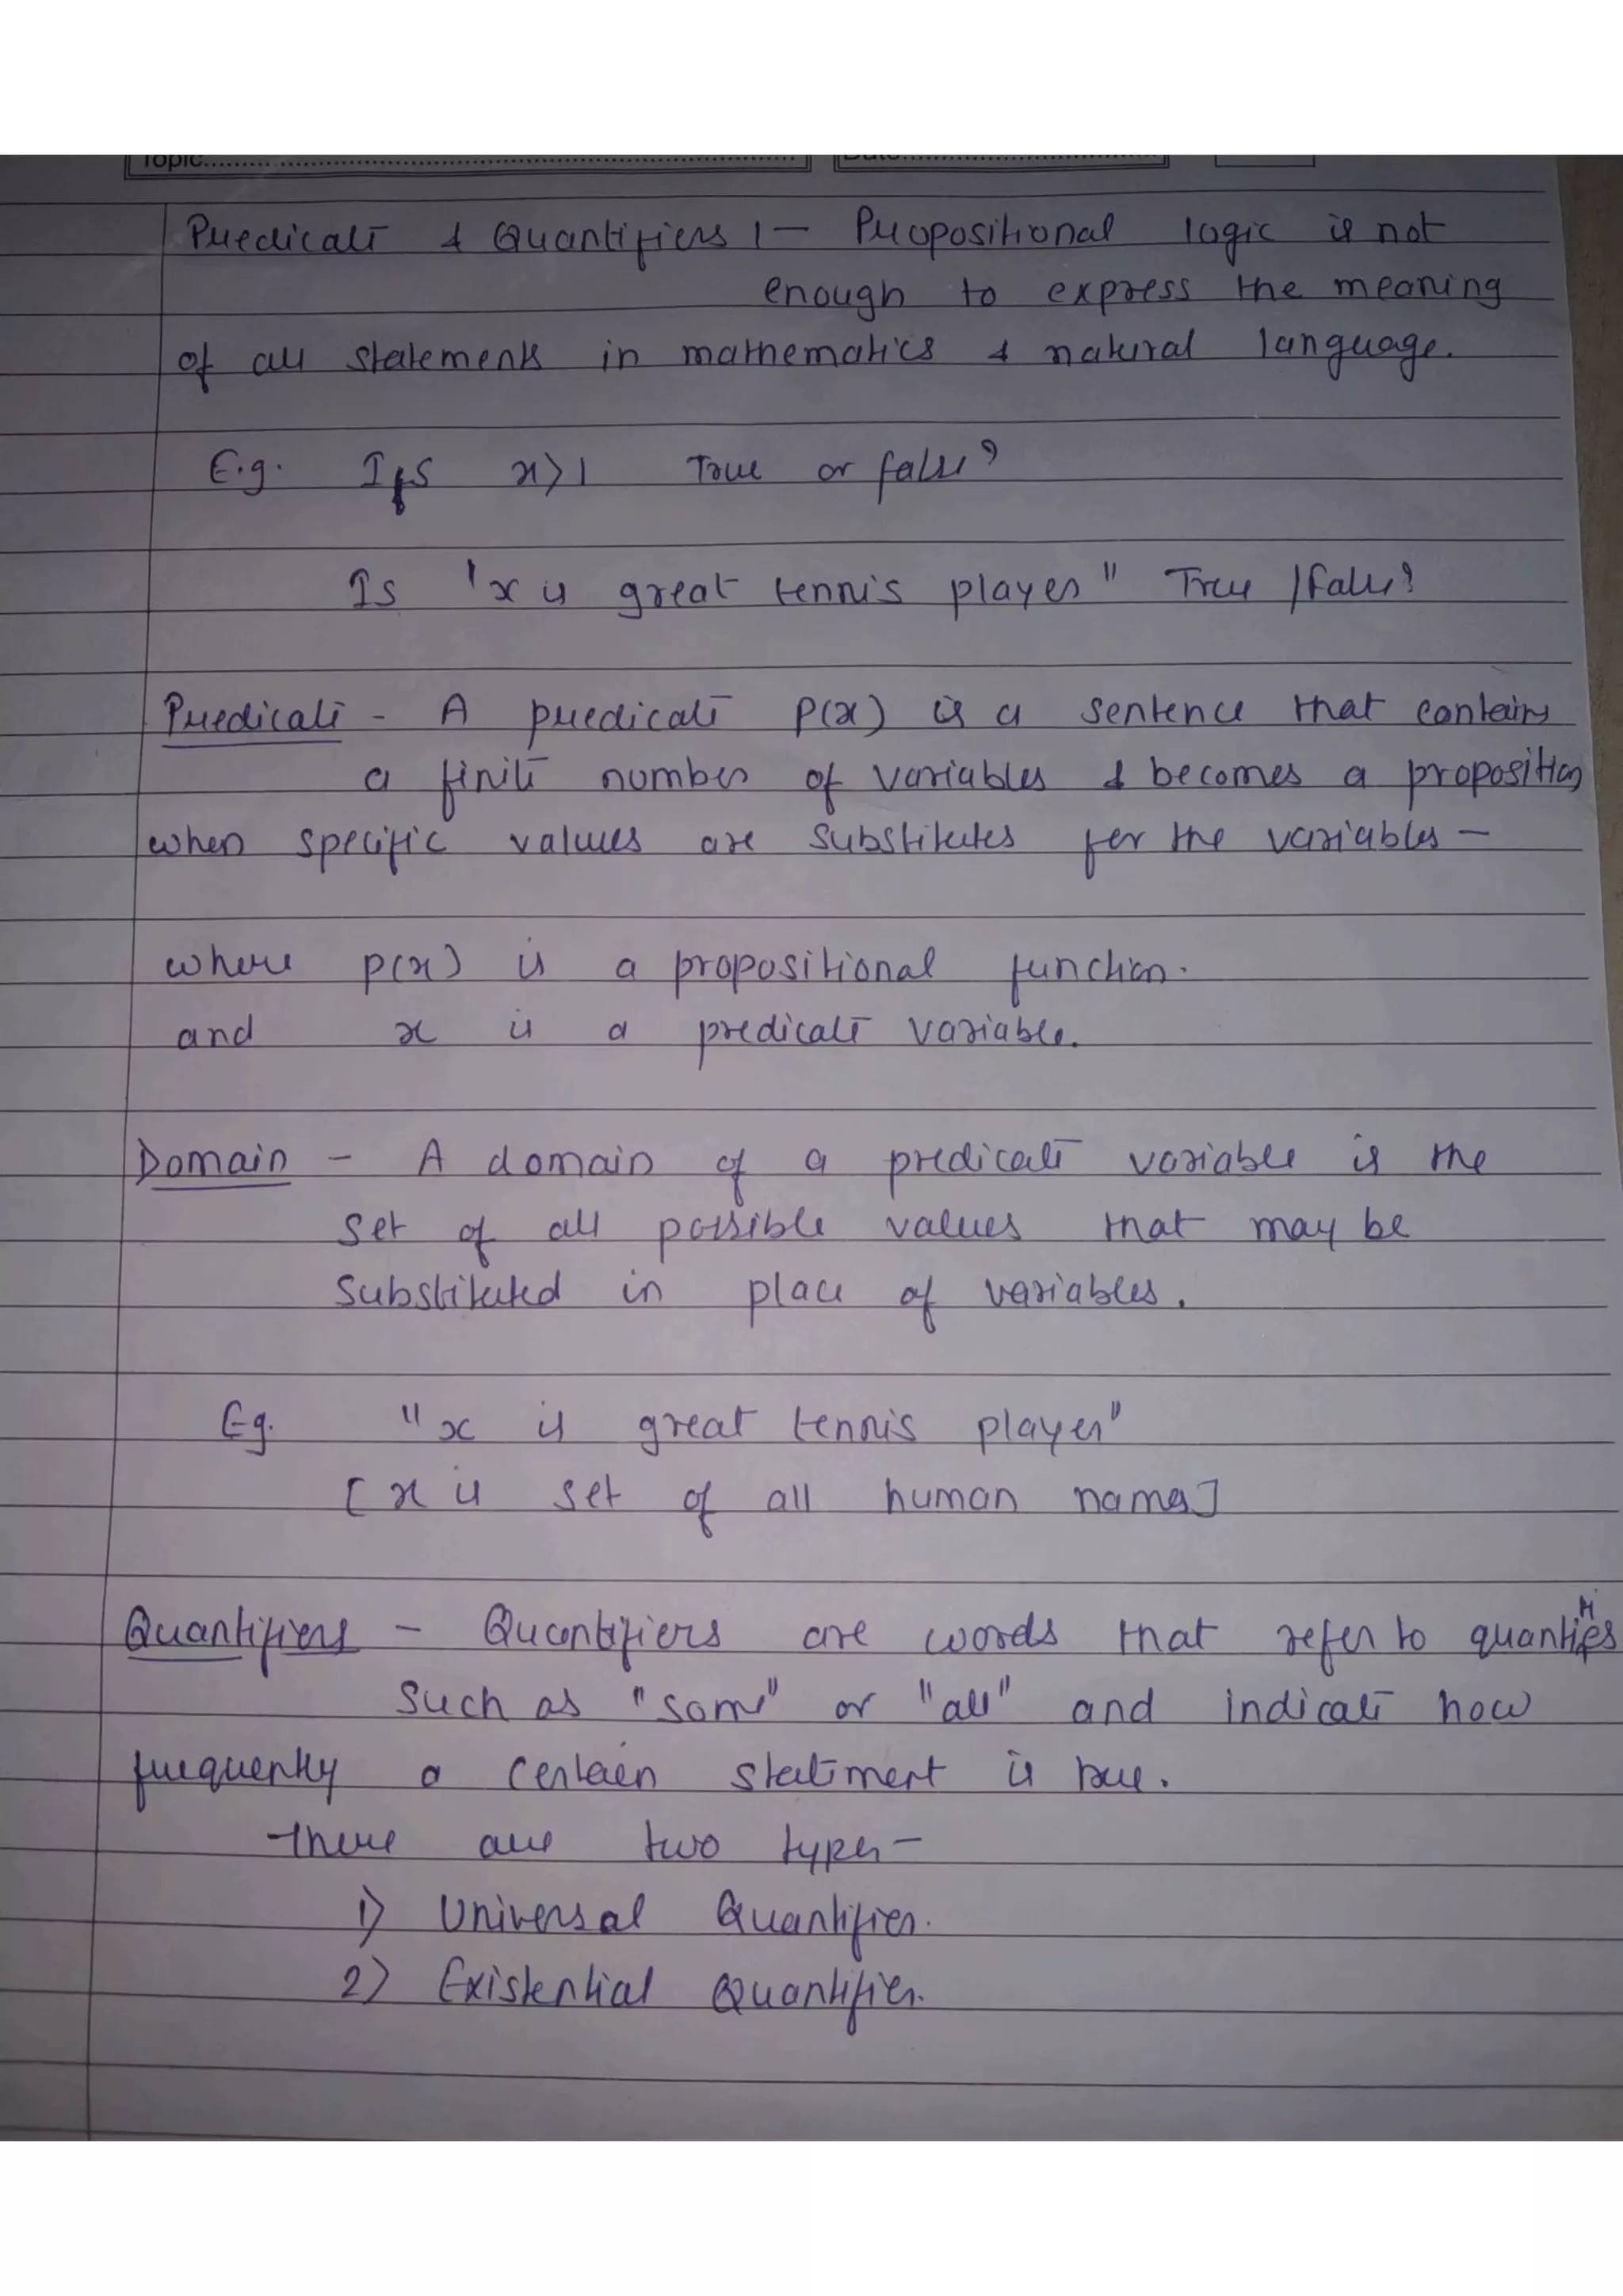 Topic
Predicate & Quantifiers :- Propositional logic is not
enough to express the meaning
of all statements in mathematics & natural language.
E.g. Is x>1 True or false?
Is "x is great tennis player" True/False?
Predicate - A predicate P(x) is a sentence that contains
a finite number of variables & becomes a proposition
when specific values are substitutes for the variables -
where p(x) is a propositional function.
and x is a predicate variable.
Domain - A domain of a predicate variable is the
set of all possible values that may be
substituted in place of variables.
Eg. "x is great tennis player"
[x is set of all human names]
Quantifiers - Quantifiers are words that refer to quantities
such as "some" or "all" and indicate how
frequently a certain statement is true.
There are two types -
1) Universal Quantifier.
2) Existential Quantifier.